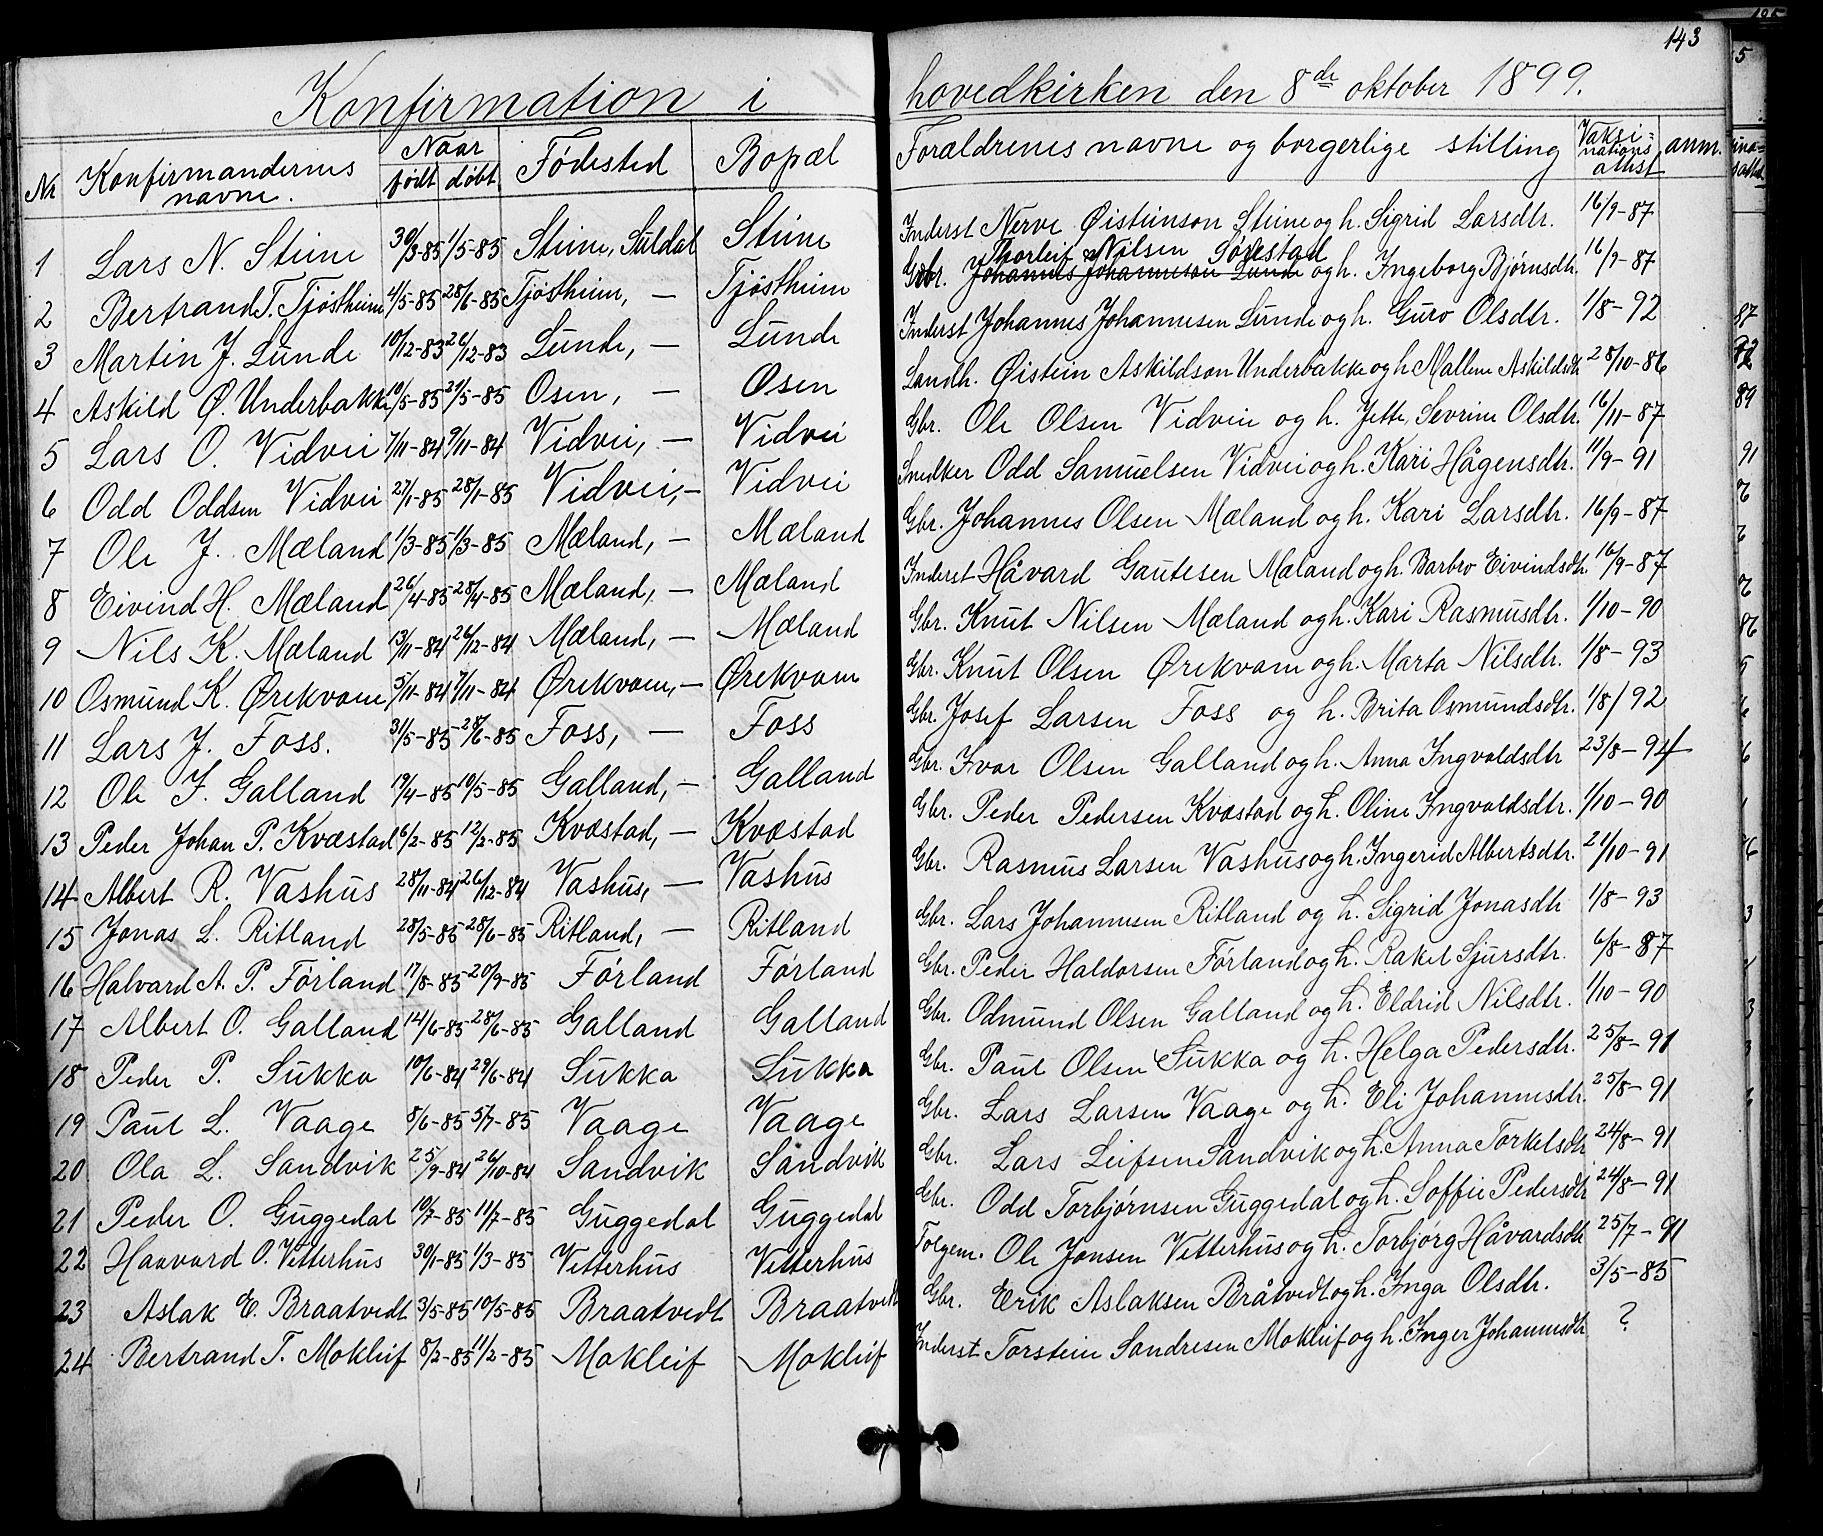 143
Konfirmation i hovedkirken den 8de oktober 1899.
Nr. Konfirmandernes navne. Naar født døbt Fødested Bopæl Forældrenes navne og borgerlige stilling Vaksinations attest anm.
1 Lars N. Steine 30/3-85 1/5-85 Steine, Suldal Steine Inderst Nerve Øisteinson Steine og h. Sigrid Larsdtr. 16/9-87
Thorleif Nilsen Sørestad
2 Bertrand T. Tjøstheim 4/5-85 28/6-85 Tjøstheim, — Tjøstheim Gbr. Johannes Johannesen Lunde og h. Ingeborg Bjørnsdtr. 16/9-87
3 Martin J. Lunde 10/12-83 26/12-83 Lunde, — Lunde Inderst Johannes Johannesen Lunde og h. Guro Olsdtr. 1/8-92
4 Askild Ø. Underbakke 10/5-85 21/5-85 Osen, — Osen Landh. Øistein Askildson Underbakke og h. Mallene Askildsdtr. 28/10-86
5 Lars O. Vidvei 7/11-84 9/11-84 Vidvei, — Vidvei Gbr. Ole Olsen Vidvei og h. Jette Sevrine Olsdtr. 16/11-87
6 Odd Oddsen Vidvei 27/1-85 28/1-85 Vidvei, — Vidvei Snedker Odd Samuelsen Vidvei og h. Kari Hågensdtr. 11/9-91
7 Ole J. Mæland 1/3-85 1/3-85 Mæland, — Mæland Gbr. Johannes Olsen Mæland og h. Kari Larsdtr. 16/9-87
8 Eivind H. Mæland 26/4-85 28/4-85 Mæland, — Mæland Inderst Håvard Gautesen Mæland og h. Barbro Eivindsdtr. 16/9-87
9 Nils K. Mæland 13/11-84 26/12-84 Mæland, — Mæland Gbr. Knut Nilsen Mæland og h. Kari Rasmusdtr. 1/10-90
10 Osmund K. Ørekvam 5/11-84 7/11-84 Ørekvam, — Ørekvam Gbr. Knut Olsen Ørekvam og h. Marta Nilsdtr. 1/8-93
11 Lars J. Foss. 31/5-85 28/6-85 Foss, — Foss Gbr. Josef Larsen Foss og h. Brita Osmundsdtr. 1/8/92
12 Ole I. Galland 19/4-85 10/5-85 Galland, — Galland Gbr. Ivar Olsen Galland og h. Anna Ingvaldsdtr 23/8-94
13 Peder Johan P. Kvæstad 6/2-85 12/2-85 Kvæstad, — Kvæstad Gbr. Peder Pedersen Kvæstad og h. Oline Ingvaldsdtr. 1/10-90
14 Albert R. Vashus 28/11-84 26/12-84 Vashus, — Vashus Gbr. Rasmus Larsen Vashus og h. Ingerid Albertsdtr. 21/10-91
15 Jonas L. Ritland 28/5-85 28/6-85 Ritland, — Ritland Gbr. Lars Johannesen Ritland og h. Sigrid Jonasdtr 1/8-93
16 Halvard A. P. Førland 17/8-85 20/9-85 Førland Førland Gbr. Peder Haldorsen Førland og h. Rakel Sjursdtr. 6/8-87
17 Albert O. Galland 14/6-85 28/6-85 Galland Galland Gbr. Odmund Olsen Galland og h. Eldrid Nilsdtr. 1/10-90
18 Peder P. Sukka 10/6-84 29/6-84 Sukka Sukka Gbr. Paul Olsen Sukka og h. Helga Pedersdtr. 25/8-91
19 Paul L. Vaage 8/6-85 5/7-85 Vaage Vaage Gbr. Lars Larsen Vaage og h. Eli Johannesdtr. 25/8-91
20 Ola L. Sandvik 25/9-84 26/10-84 Sandvik Sandvik Gbr. Lars Leifsen Sandvik og h. Anna Torkelsdtr 24/8-91
21 Peder O. Guggedal 10/7-85 11/7-85 Guggedal Guggedal Gbr. Odd Torbjørnsen Guggedal og h. Soffie Pedersdtr 24/8-91
22 Haavard O. Vetterhus 30/1-85 1/3-85 Vetterhus Vetterhus Folgem. Ole Jonsen Vetterhus og h. Torbjørg Håvardsdtr 25/7-91
23 Aslak E. Braatvedt 3/5-85 10/5-85 Braatvedt Braatvedt Gbr. Erik Aslaksen Bråtvedt og h. Inga Olsdtr. 3/5-85
24 Bertrand T. Mokleif 8/2-85 11/2-85 Mokleif Mokleif Inderst Torstein Sandresen Mokleif og h. Inger Johannesdtr ?